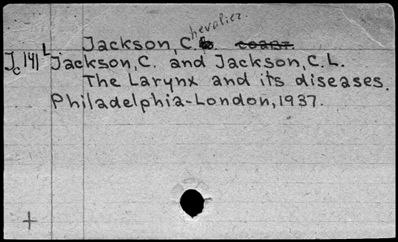 Jackson, Chevalier.
Jc 141 L Jackson, C. and Jackson, C.L.
The Larynx and its diseases.
Philadelphia-London, 1937.